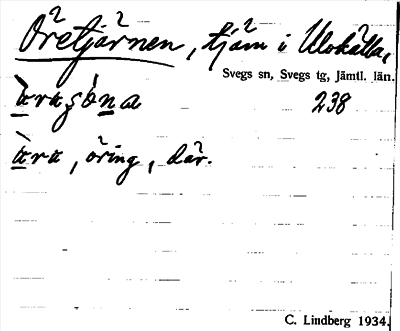 Öretjärnen, tjärn i Ulvkälla,
Svegs sn, Svegs tg, Jämtl. län.
238
öring, där.
C. Lindberg 1934.